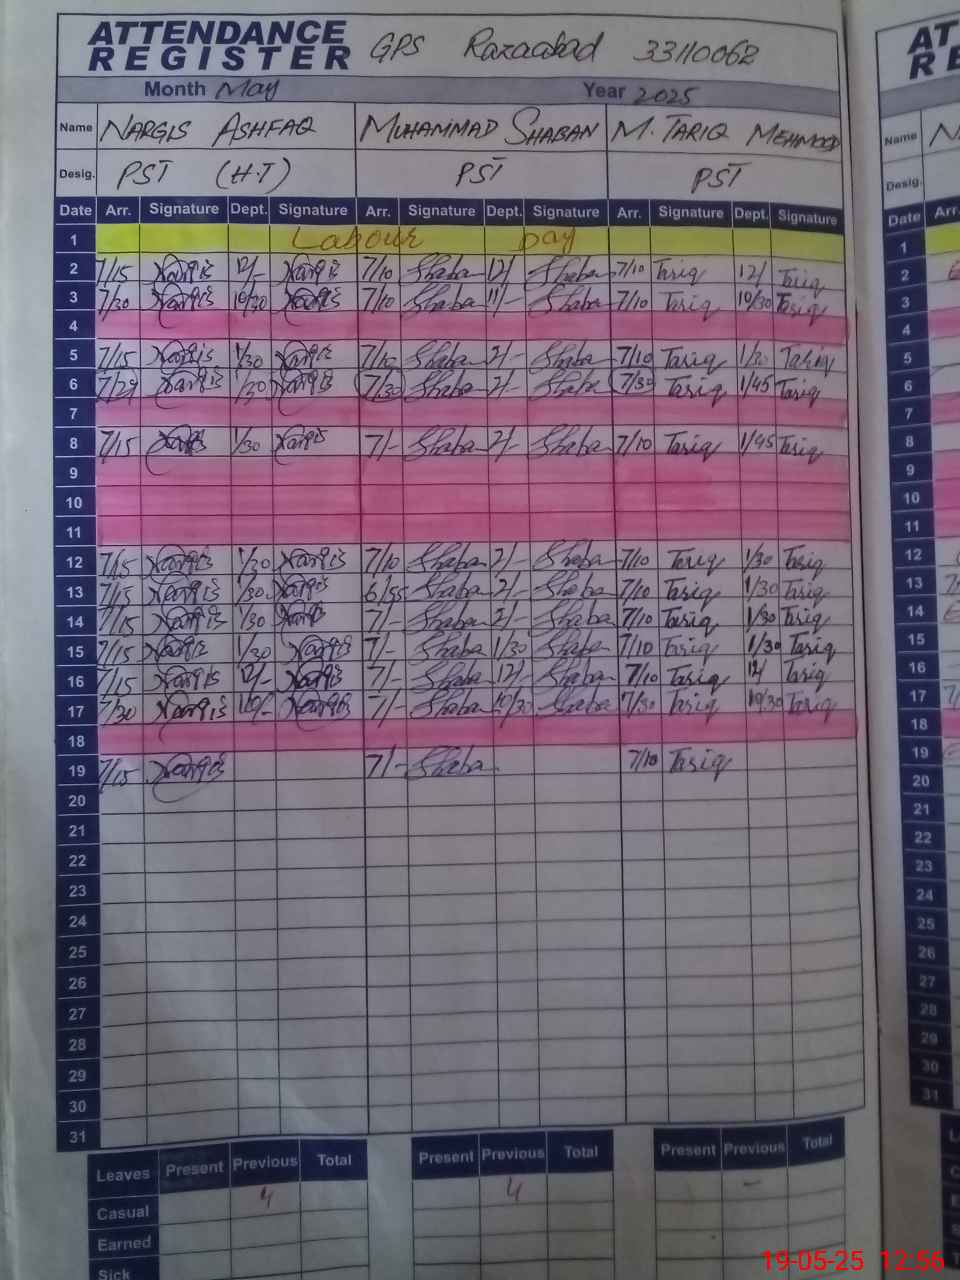 ATTENDANCE REGISTER GPS Razaabad 33110062
Month May Year 2025
Name NARGIS ASHFAQ MUHAMMAD SHABAN M. TARIQ MEHMOOD
Desig. PST (H.T) PST PST
Date Arr. Signature Dept. Signature Arr. Signature Dept. Signature Arr. Signature Dept. Signature
1 Labour Day
2 7/15 Nargis 12/- Nargis 7/10 Shaban 12/ Shaban 7/10 Tariq 12/ Tariq
3 7/30 Nargis 10/30 Nargis 7/10 Shaban 11/- Shaban 7/10 Tariq 10/30 Tariq
4
5 7/15 Nargis 1/30 Nargis 7/10 Shaban 2/- Shaban 7/10 Tariq 1/30
6 7/29 Nargis 1/30 Nargis 7/30 Shaban 2/- Shaban 7/30 Tariq 1/45 Tariq
7
8 7/15 Nargis 1/30 Nargis 7/- Shaban 2/- Shaban 7/10 Tariq 1/45 Tariq
9
10
11
12 7/15 Nargis 1/30 Nargis 7/10 Shaban 2/- Shaban 7/10 Tariq 1/30 Tariq
13 7/15 Nargis 1/30 Nargis 6/55 Shaban 2/- Shaban 7/10 Tariq 1/30 Tariq
14 7/15 Nargis 1/30 Nargis 7/- Shaban 2/- Shaban 7/10 Tariq 1/30 Tariq
15 7/15 Nargis 1/30 Nargis 7/- Shaban 1/30 Shaban 7/10 Tariq 1/30 Tariq
16 7/15 Nargis 12/- Nargis 7/- Shaban 12/- Shaban 7/10 Tariq 12/ Tariq
17 7/30 Nargis Nargis 7/- Shaban 10/30 Shaban 7/30 Tariq 10/30 Tariq
18
19 7/15 Nargis 7/- Shaban 7/10 Tariq
20
21
22
23
24
25
26
27
28
29
30
31
Leaves Present Previous Total Present Previous Total Present Previous Total
Casual 4 4 -
Earned
Sick
Name
Desig.
Date Arr.
1
2
3
4
5
6
7
8
9
10
11
12
13
14
15
16
17
18
19
20
21
22
23
24
25
26
27
28
29
30
31
19-05-25 12:56